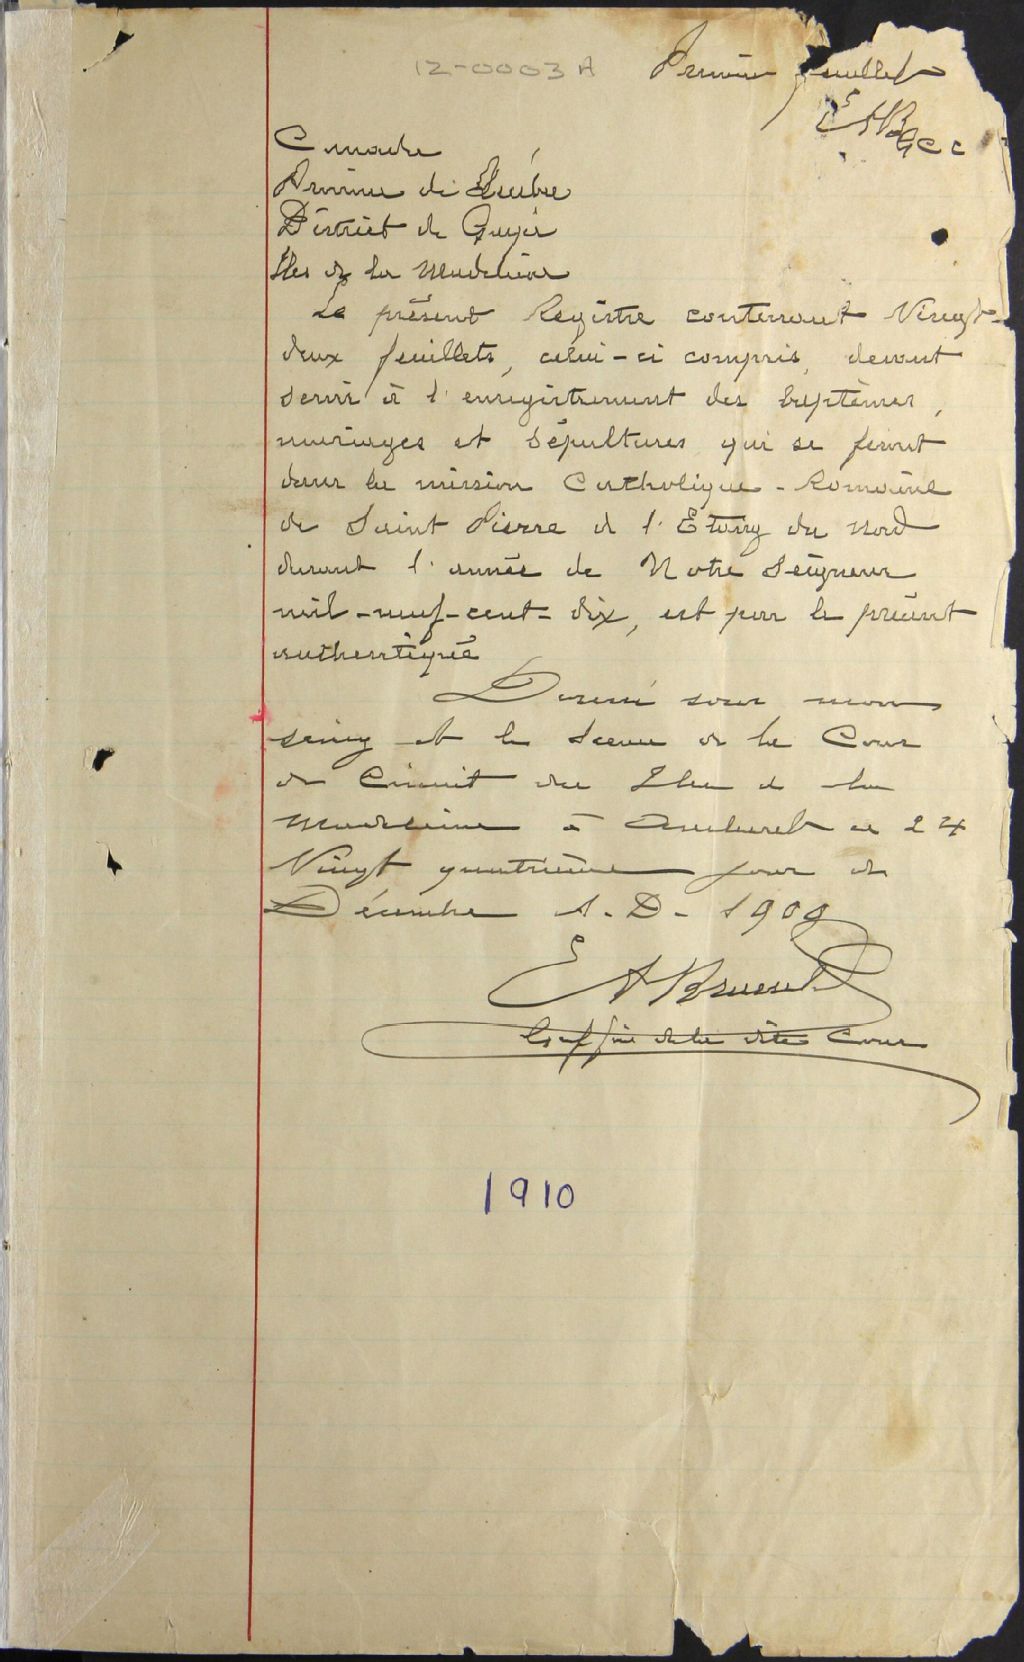 12-0003 A
Premier feuillet
EAB GCC
Canada
Province de Québec
District de Gaspé
Iles de la Madeleine
Le présent Registre contenant Vingt-
deux feuillets, celui-ci compris, devant
servir à l'enregistrement des baptêmes,
mariages et sépultures qui se feront
dans la mission Catholique-Romaine
de Saint Pierre de l'Etang du Nord
durant l'année de Notre Seigneur
mil-neuf-cent-dix, est par le présent
authentiqué
Donné sous mon
seing et le Sceau de la Cour
de Circuit des Iles de la
Madeleine à Amherst ce 24
Vingt quatrième jour de
Décembre A.D. 1909
E A Brunet
Greffier de la dite Cour
1910